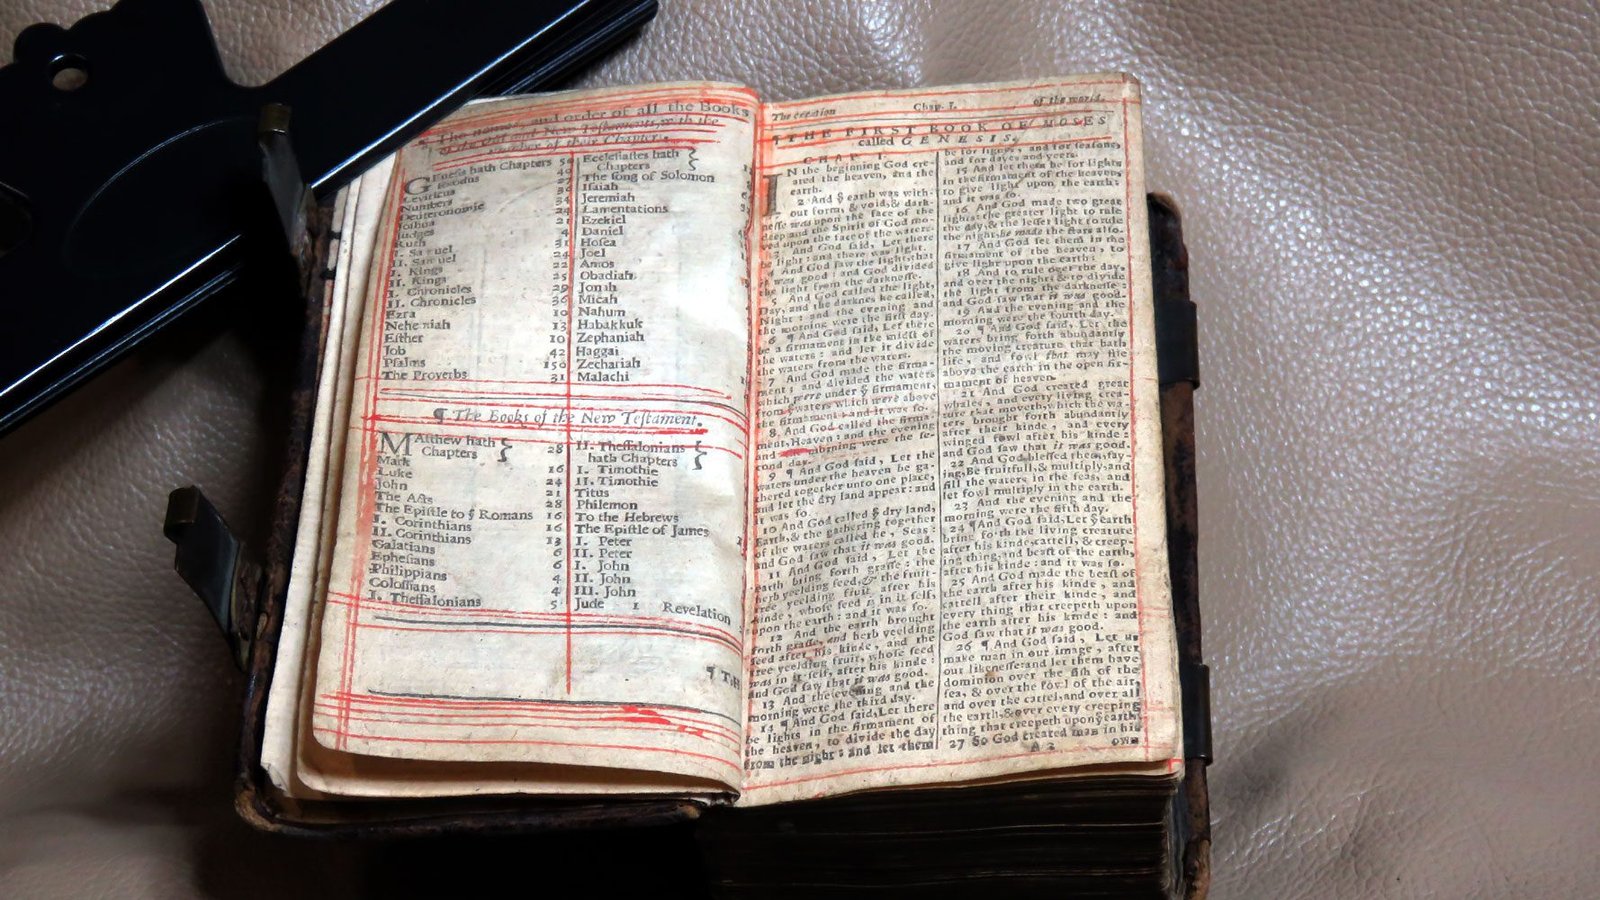 The names and order of all the Books
of the Old and New Testaments, with the
Number of their Chapters.
GEnesis hath Chapters 50
Exodus 40
Leviticus 27
Numbers 36
Deuteronomie 34
Joshua 24
Judges 21
Ruth 4
I. Samuel 31
II. Samuel 24
I. Kings 22
II. Kings 25
I. Chronicles 29
II. Chronicles 36
Ezra 10
Nehemiah 13
Esther 10
Job 42
Psalms 150
The Proverbs 31
Ecclesiastes hath
Chapters
The song of Solomon
Isaiah
Jeremiah
Lamentations
Ezekiel
Daniel
Hosea
Joel
Amos
Obadiah
Jonah
Micah
Nahum
Habakkuk
Zephaniah
Haggai
Zechariah
Malachi
¶ The Books of the New Testament.
MAtthew hath
Chapters 28
Mark 16
Luke 24
John 21
The Acts 28
The Epistle to ỹ Romans 16
I. Corinthians 16
II. Corinthians 13
Galatians 6
Ephesians 6
Philippians 4
Colossians 4
I. Thessalonians 5
II. Thessalonians
hath Chapters
I. Timothie
II. Timothie
Titus
Philemon
To the Hebrews
The Epistle of James
I. Peter
II. Peter
I. John
II. John
III. John
Jude 1 Revelation
¶ THE
The creation Chap. I. of the world.
¶ THE FIRST BOOK OF MOSES
called GENESIS.
CHAP. I.
IN the beginning God cre-
ated the heaven, and the
earth.
2 And ỹ earth was with-
out form, & void, & dark
nesse was upon the face of the
deep: and the Spirit of God mo-
ved upon the face of the waters.
3 And God said, Let there
be light: and there was light.
4 And God saw the light, that
it was good: and God divided
the light from the darknesse.
5 And God called the light,
Day, and the darknes he called,
Night: and the evening and
the morning were the first day.
6 ¶ And God said, Let there
be a firmament in the midst of
the waters: and let it divide
the waters from the waters.
7 And God made the firma-
ment: and divided the waters
which were under ỹ firmament,
from ỹ waters which were above
the firmament: and it was so.
8 And God called the firma-
ment, Heaven: and the evening
and morning were the se-
cond day.
9 ¶ And God said, Let the
waters under the heaven be ga-
thered together unto one place,
and let the dry land appear: and
it was so.
10 And God called ỹ dry land,
Earth, & the gathering together
of the waters called he, Seas:
and God saw that it was good.
11 And God said, Let the
earth bring forth grasse: the
herb yeelding seed, & the fruit-
tree yeelding fruit, after his
kinde, whose seed is in it self,
upon the earth: and it was so.
12 And the earth brought
forth grasse, and herb yeelding
seed after his kinde, and the
tree yeelding fruit, whose seed
was in it self, after his kinde:
and God saw that it was good.
13 And the evening and the
morning were the third day.
14 ¶ And God said, Let there
be lights in the firmament of
the heaven, to divide the day
from the night: and let them
be for signes, and for seasons,
and for dayes and yeers.
15 And let them be for lights
in the firmament of the heaven,
to give light upon the earth:
and it was so.
16 And God made two great
lights: the greater light to rule
the day, & the lesser light to rule
the night: he made the stars also.
17 And God set them in the
firmament of the heaven, to
give light upon the earth:
18 And to rule over the day,
and over the night, & to divide
the light from the darknesse:
and God saw that it was good.
19 And the evening and the
morning were the fourth day.
20 ¶ And God said, Let the
waters bring forth abundantly
the moving creature that hath
life, and fowl that may flie
above the earth in the open fir-
mament of heaven.
21 And God created great
whales, and every living crea-
ture that moveth, which the wa-
ters brought forth abundantly
after their kinde, and every
winged fowl after his kinde:
and God saw that it was good.
22 And God blessed them, say-
ing, Be fruitfull, & multiply, and
fill the waters in the seas, and
let fowl multiply in the earth.
23 And the evening and the
morning were the fifth day.
24 ¶ And God said, Let ỹ earth
bring forth the living creature
after his kinde, cattell, & creep-
ing thing, and beast of the earth,
after his kinde: and it was so.
25 And God made the beast of
the earth after his kinde, and
cattell after their kinde, and
every thing that creepeth upon
the earth after his kinde: and
God saw that it was good.
26 ¶ And God said, Let us
make man in our image, after
our likenesse: and let them have
dominion over the fish of the
sea, & over the fowl of the air,
and over the cattel, and over all
the earth, & over every creeping
thing that creepeth upon ỹ earth.
27 So God created man in his
A 2 own